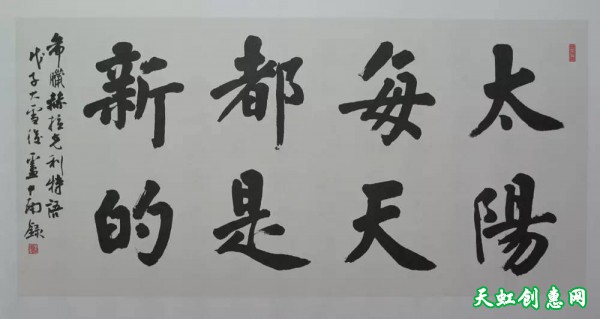 太陽
每天
都是
新的
希臘赫拉克利特語
戊子大雪後盧中南錄
天虹创惠网